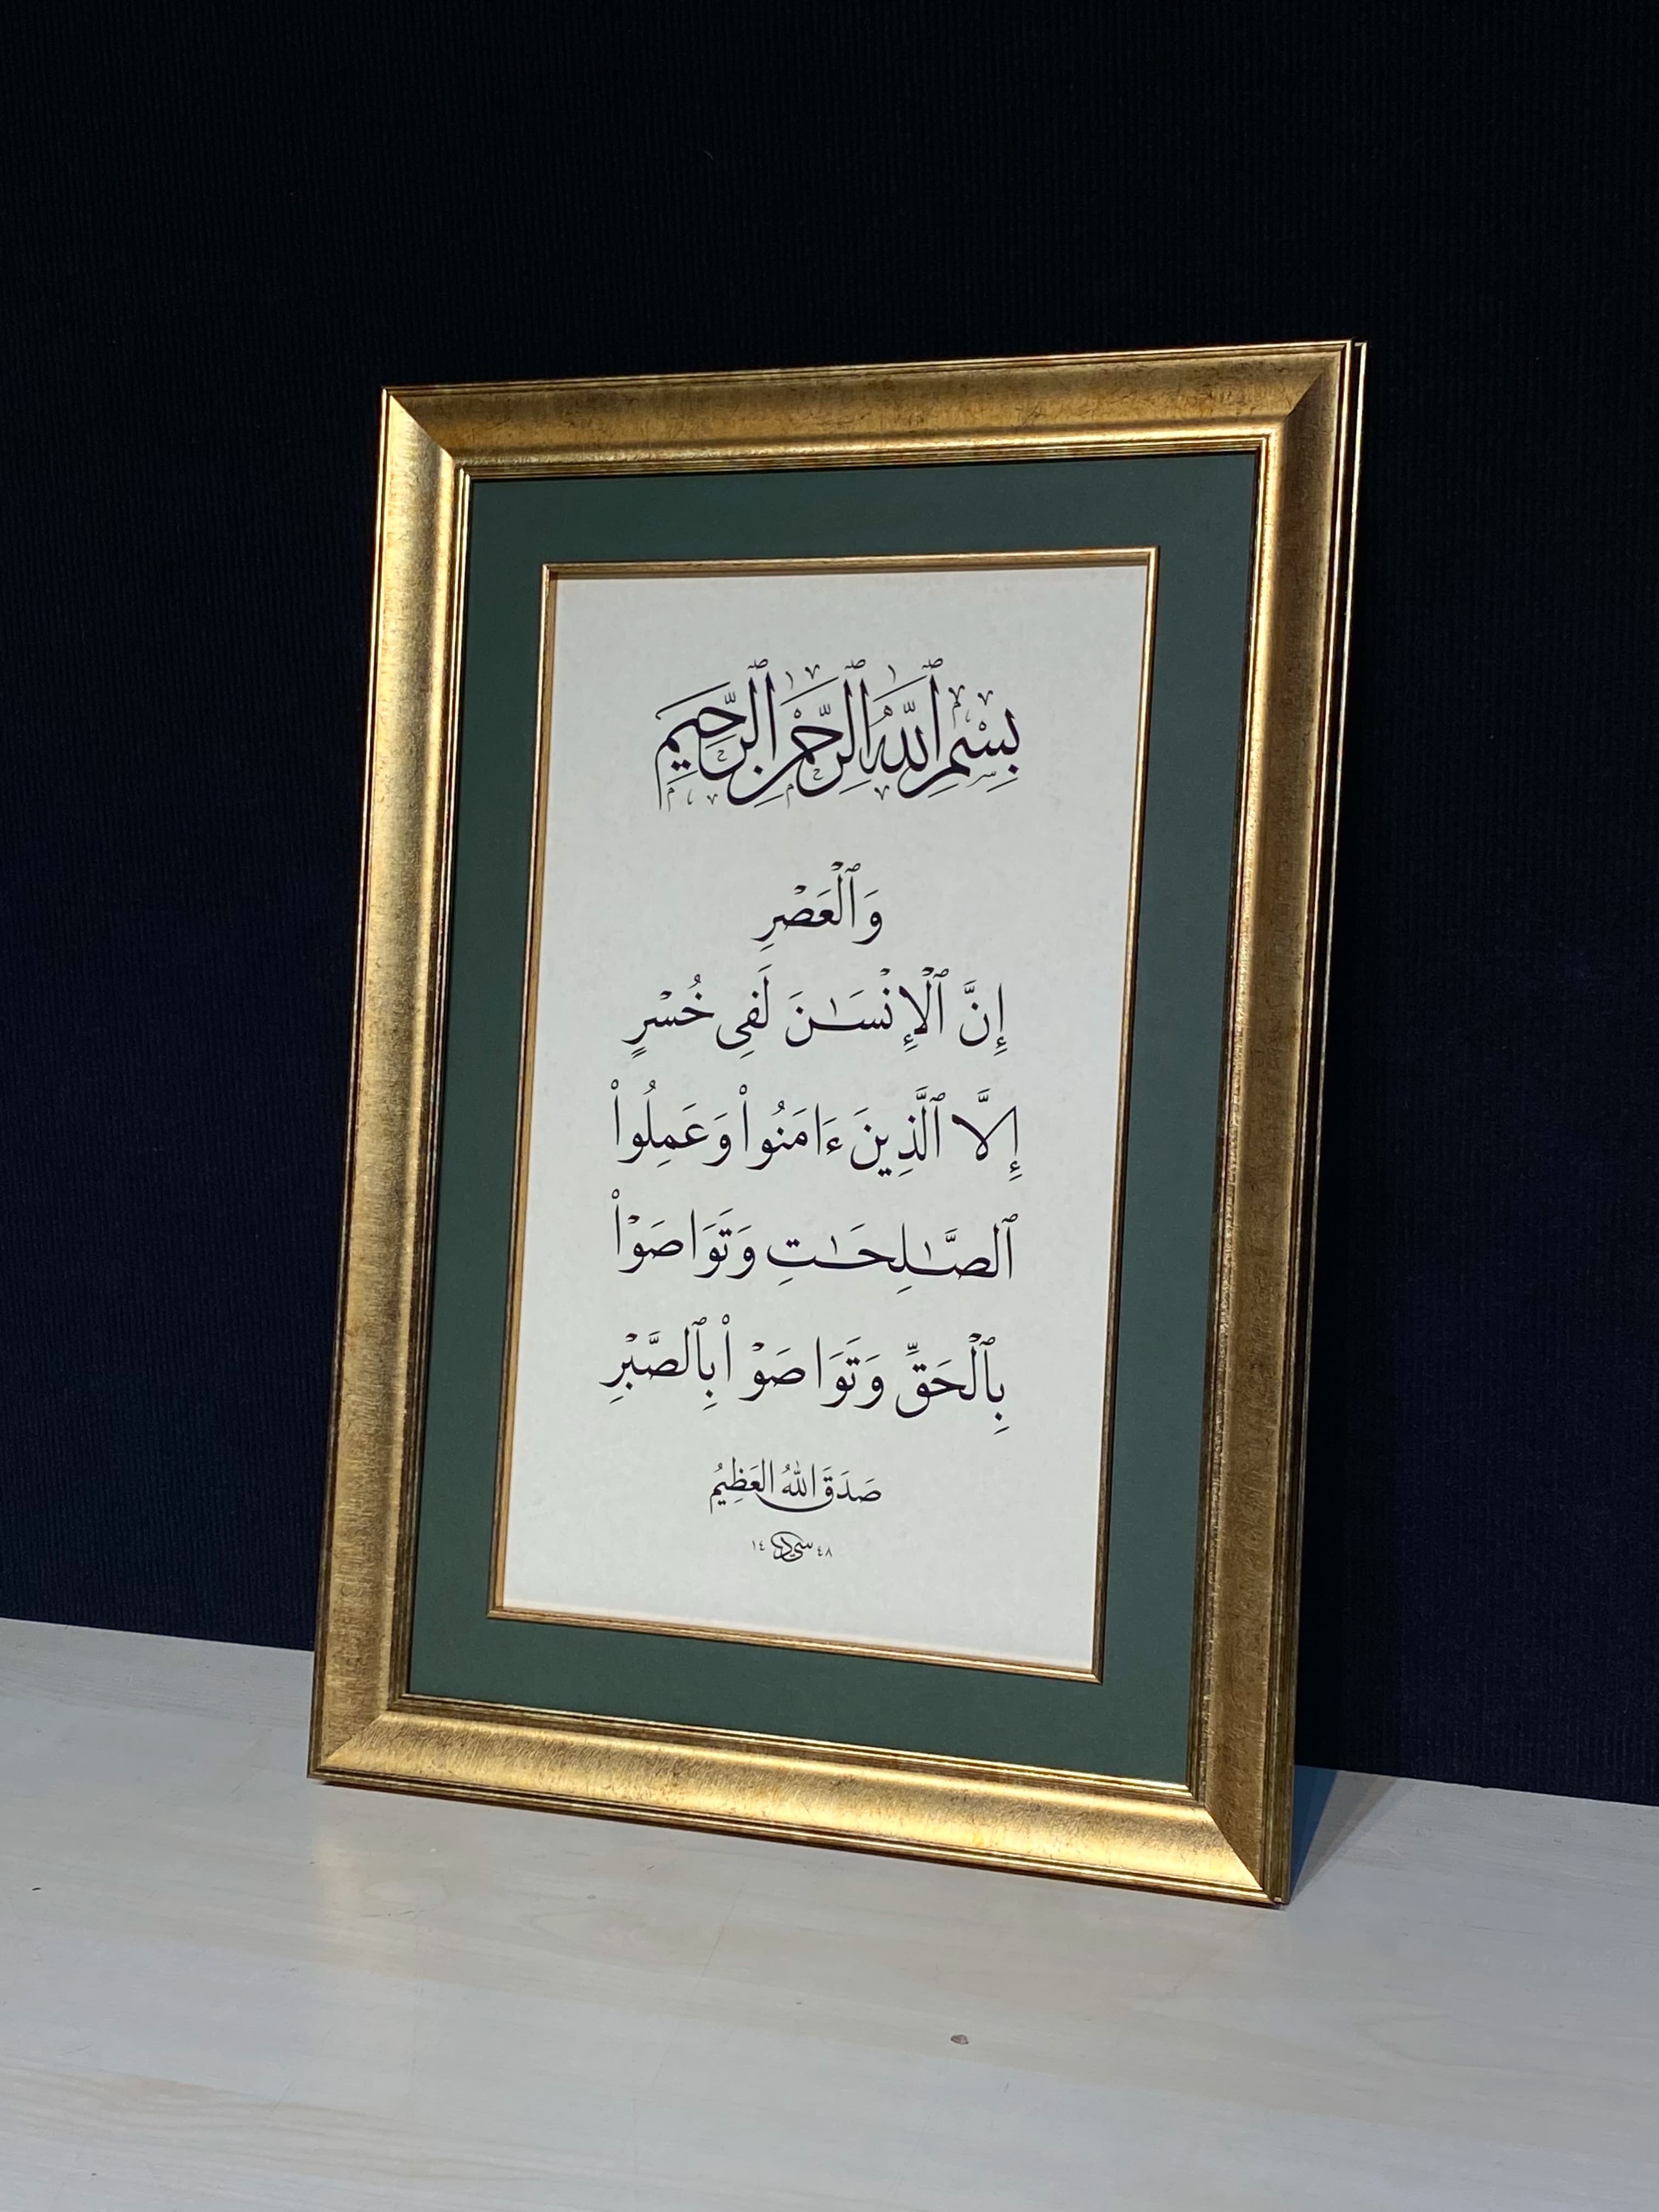 بِسْمِ ٱللَّهِ ٱلرَّحْمٰنِ ٱلرَّحِيمِ
وَٱلْعَصْرِ
إِنَّ ٱلْإِنْسَـٰنَ لَفِى خُسْرٍ
إِلَّا ٱلَّذِينَ ءَامَنُوا۟ وَعَمِلُوا۟
ٱلصَّـٰلِحَـٰتِ وَتَوَاصَوْا۟
بِٱلْحَقِّ وَتَوَاصَوْا۟ بِٱلصَّبْرِ
صَدَقَ اللهُ العَظِيمُ
٤٨ ١٤